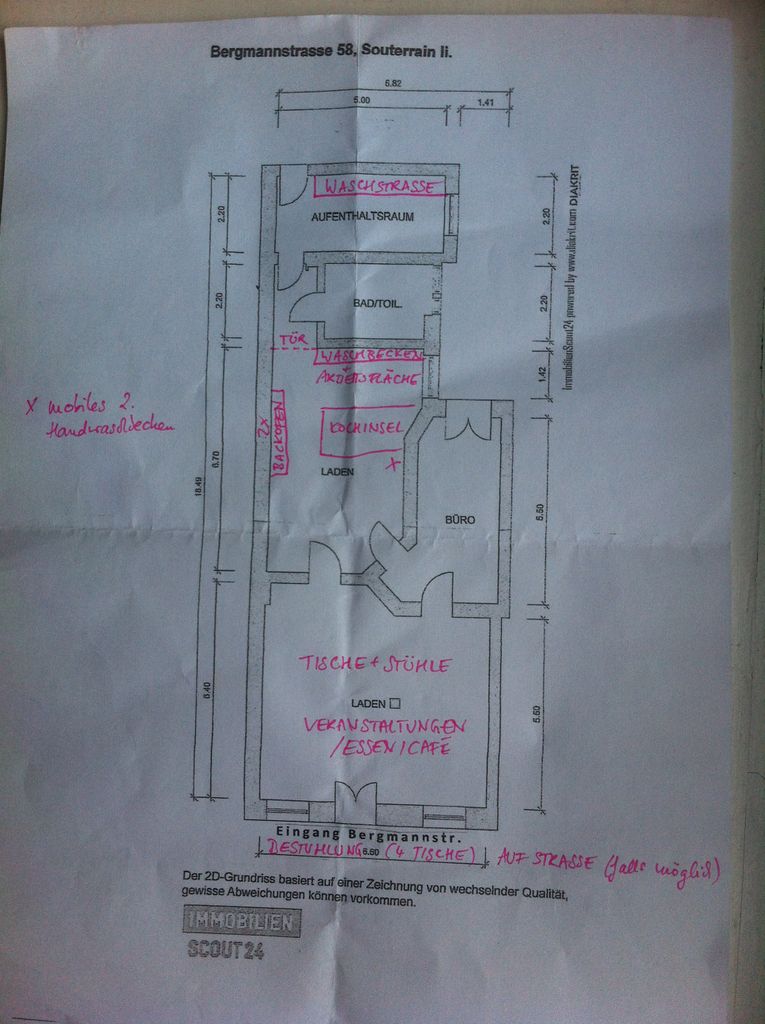 Bergmannstrasse 58, Souterrain li.
6.82
5.00
1.41
WASCHSTRASSE
AUFENTHALTSRAUM
2.20
2.20
BAD/TOIL.
2.20
2.20
TÜR
WASCHBECKEN
+
ARBEITSFLÄCHE
1.42
X mobiles 2.
Handwaschbecken
2x
BACKOFEN
KOCHINSEL
X
LADEN
6.70
18.49
BÜRO
5.60
TISCHE + STÜHLE
LADEN
VERANSTALTUNGEN
/ESSEN/CAFÉ
6.40
5.60
Eingang Bergmannstr.
BESTUHLUNG (4 TISCHE) AUF STRASSE (falls möglich)
6.60
Der 2D-Grundriss basiert auf einer Zeichnung von wechselnder Qualität,
gewisse Abweichungen können vorkommen.
IMMOBILIEN
SCOUT24
ImmobilienScout24 powered by www.diakrit.com DIAKRIT